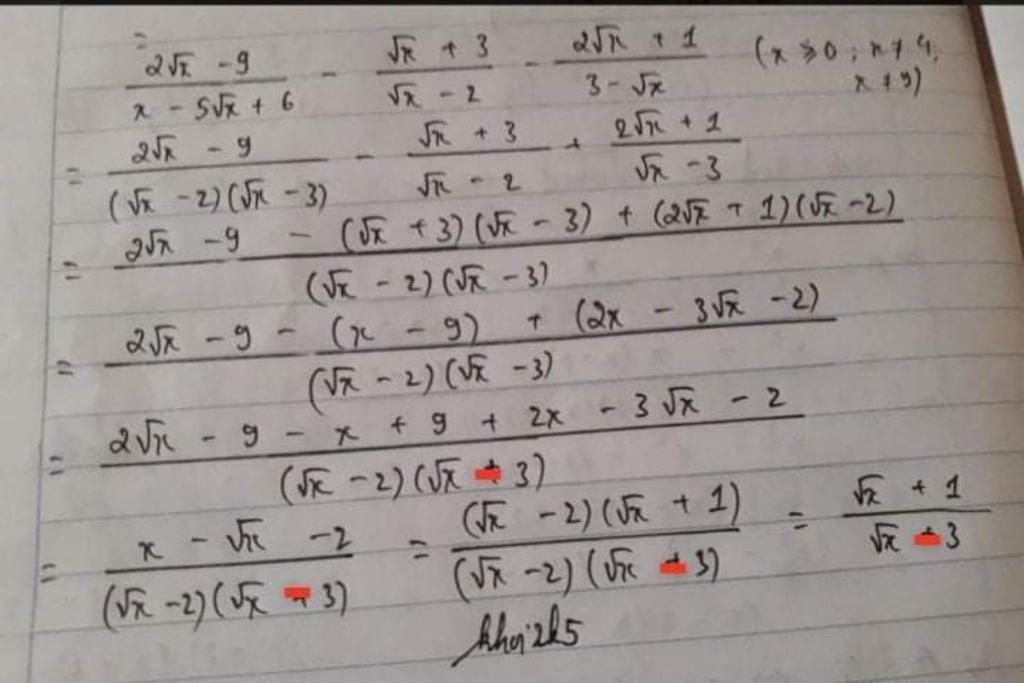 =
(2√x - 9)/(x - 5√x + 6) - (√x + 3)/(√x - 2) - (2√x + 1)/(3 - √x) (x ≥ 0; x ≠ 4; x ≠ 9)
= (2√x - 9)/((√x - 2)(√x - 3)) - (√x + 3)/(√x - 2) + (2√x + 1)/(√x - 3)
= (2√x - 9 - (√x + 3)(√x - 3) + (2√x + 1)(√x - 2))/((√x - 2)(√x - 3))
= (2√x - 9 - (x - 9) + (2x - 3√x - 2))/((√x - 2)(√x - 3))
= (2√x - 9 - x + 9 + 2x - 3√x - 2)/((√x - 2)(√x - 3))
= (x - √x - 2)/((√x - 2)(√x - 3)) = ((√x - 2)(√x + 1))/((√x - 2)(√x - 3)) = (√x + 1)/(√x - 3)